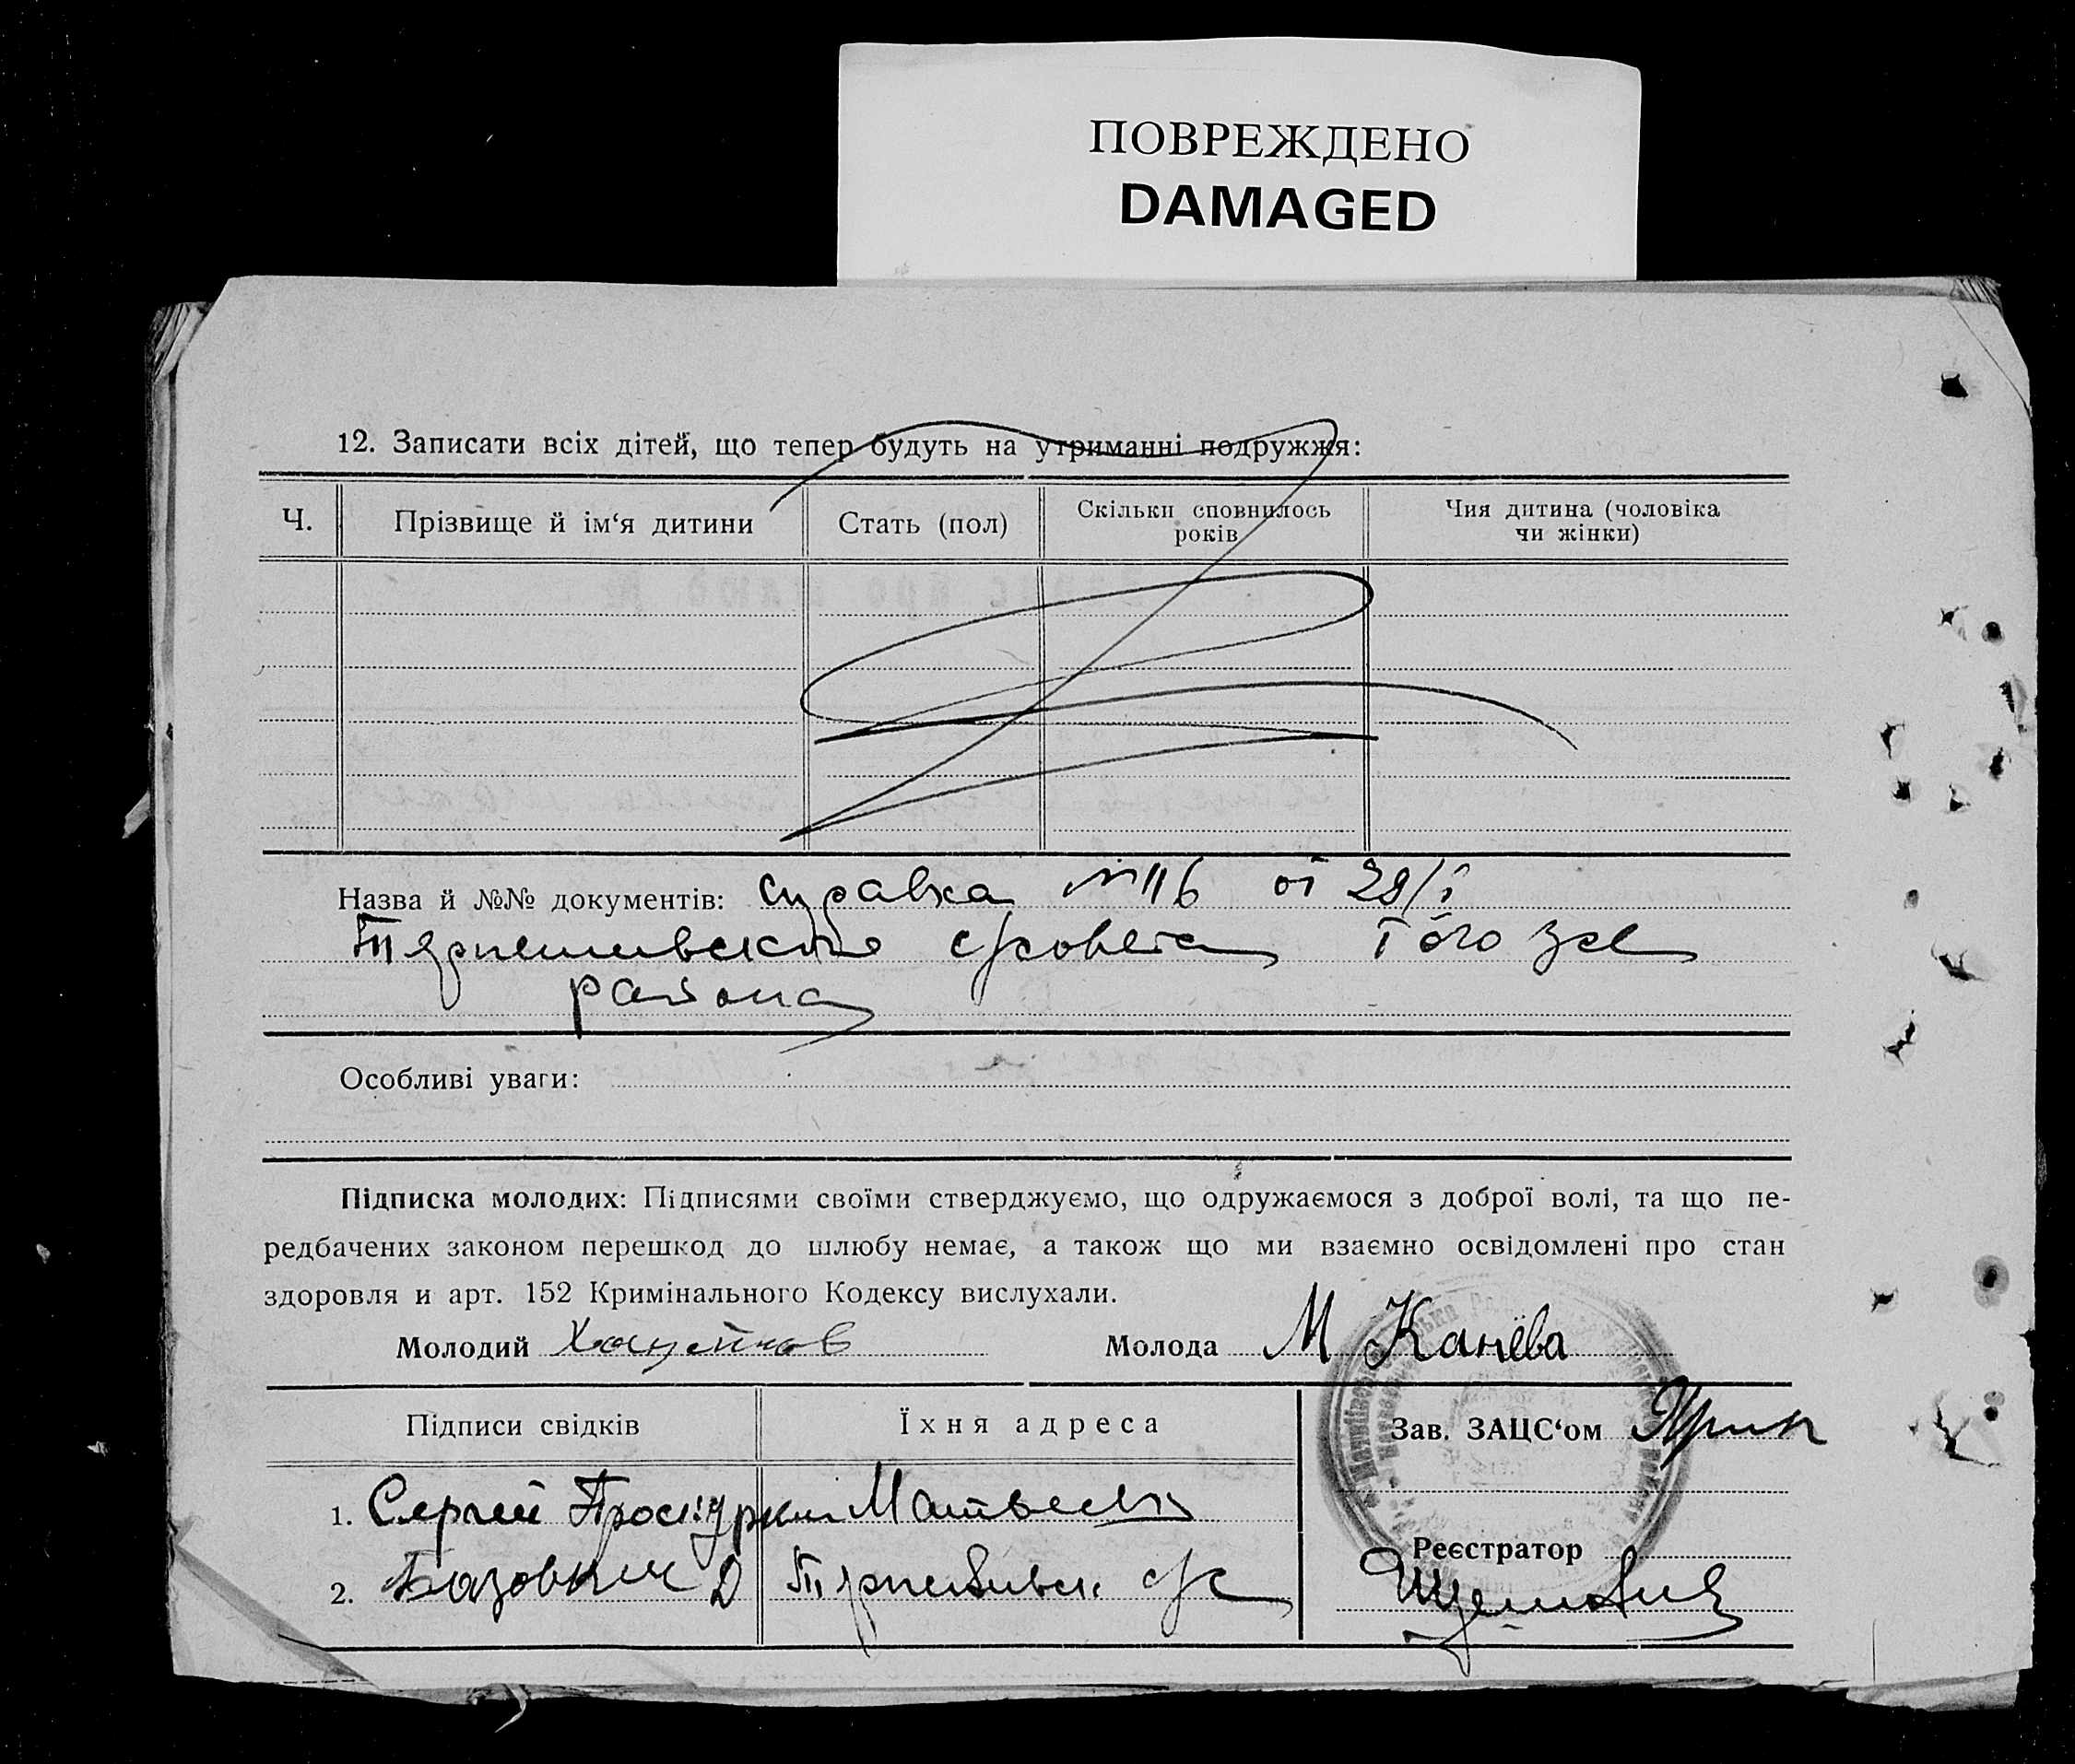 ПОВРЕЖДЕНО
DAMAGED
12. Записати всіх дітей, що тепер будуть на утриманні подружжя:
Ч. Прізвище й ім‘я дитини Стать (пол) Скільки сповнилось років Чия дитина (чоловіка чи жінки)
Назва й №№ документів: справка №116 от 29/I
с/совета того же
района
Особливі уваги:
Підписка молодих: Підписями своїми стверджуємо, що одружаємося з доброї волі, та що пе-
редбачених законом перешкод до шлюбу немає, а також що ми взаємно освідомлені про стан
здоровля и арт. 152 Кримінального Кодексу вислухали.
Молодий Молода М Канёва
Підписи свідків Їхня адреса Зав. ЗАЦС‘ом
1. Сергей
Реєстратор
2. Д с/с